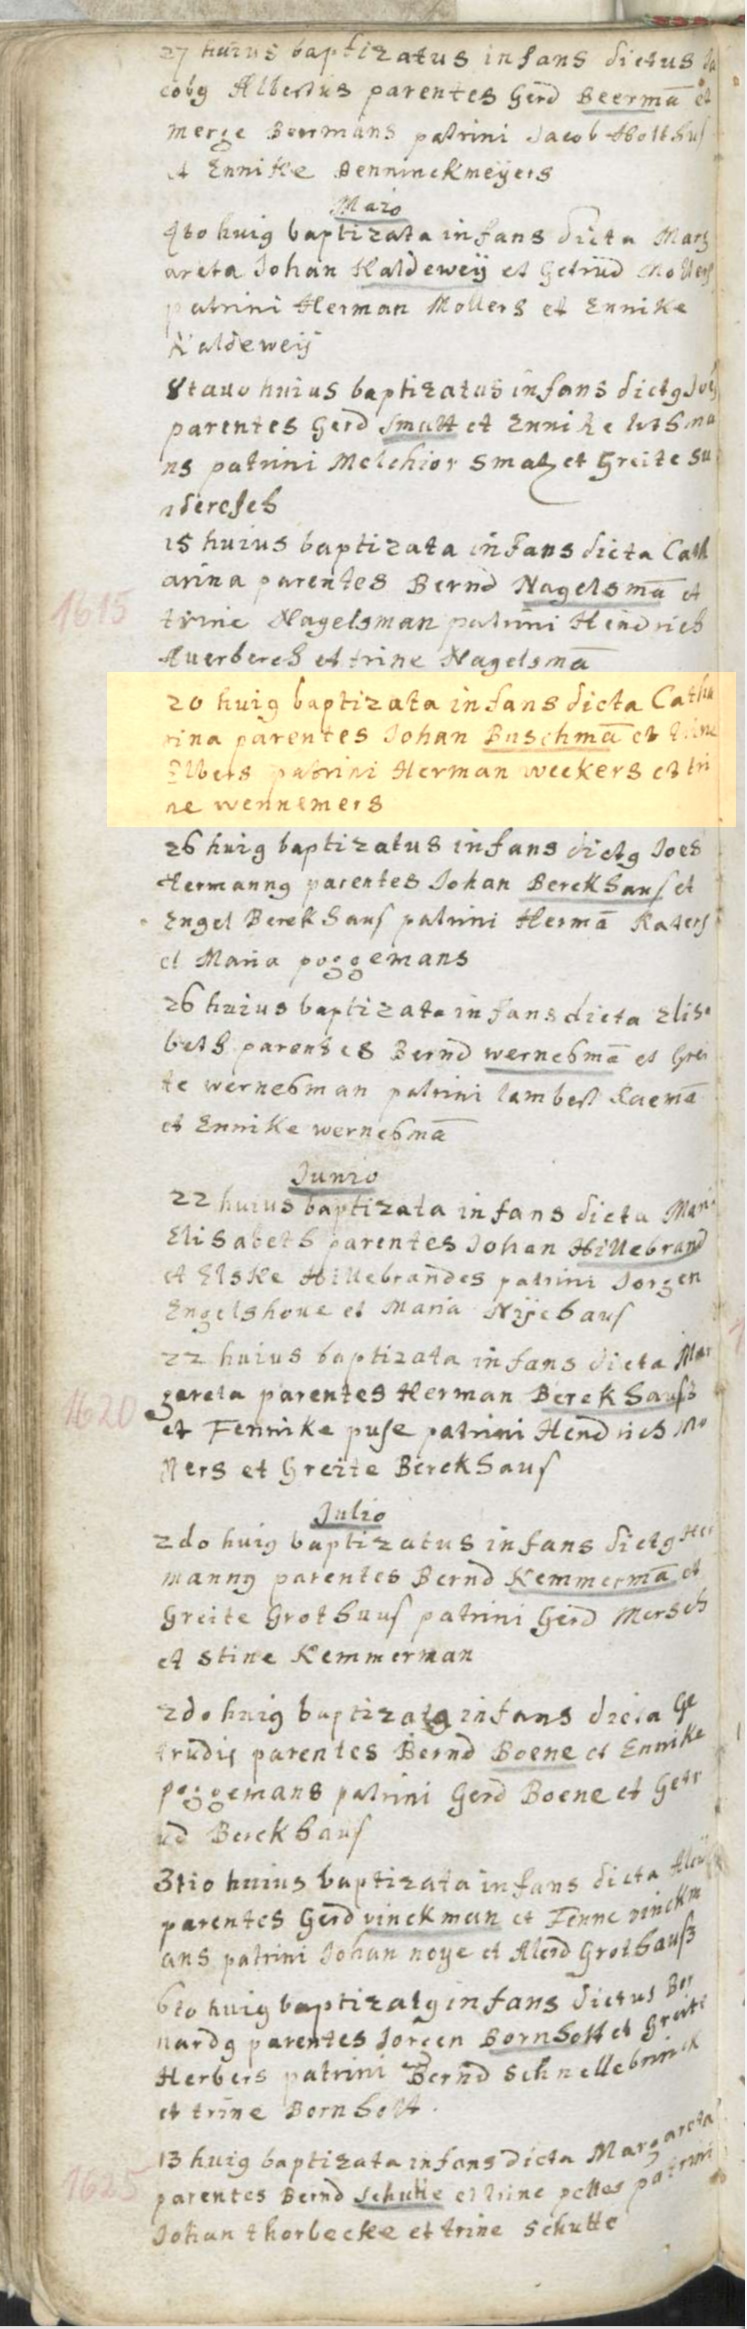 27 huius baptizatus infans dictus Ja
cobg Albertus parentes Gerd Beermā et
merge Beermans patrini Jacob Holthus
et Ennike Denninckmeyers
Maio
4to huig baptizata infans dicta Marg
areta Johan Kaldeweij et Getrud Mollers
patrini Herman Mollers et Ennike
Kaldeweij
8tauo huius baptizatus infans dictg
parentes Gerd Smatt et Ennike
ns patrini Melchior Smatz et Greite su
ndersch
15 huius baptizata infans dicta Cath
arina parentes Bernd Nagelsmā et
1615
trine Nagelsman patrini Hendrich
Auerberch et trine Nagelsmā
20 huig baptizata infans dicta Catha
rina parentes Johan Buschmā et trine
Elbers patrini Herman weckers et tri
ne wennemers
26 huig baptizatus infans dictg Joes
Hermanng parentes Johan Berckhaus et
Engel Berckhaus patrini Hermā Katers
et Maria poggemans
26 huius baptizata infans dicta Elisa
beth parentes Bernd wernesmā et Grei
te wernesman patrini lambert
et Ennike wernesmā
Junio
22 huius baptizata infans dicta Mari
Elisabeth parentes Johan Hillebrand
et Elske Hillebrandes patrini Jorgen
Engelshoue et Maria Nijehaus
22 huius baptizata infans dicta Mar
gareta parentes Herman Berckhauss
1620
et Fennike puse patrini Hendrich Mo
llers et Greite Berckhaus
Julio
2do huig baptizatus infans dictg Her
manng parentes Bernd Kemmermā et
Greite Grothuus patrini Gerd Mersch
et Stine Kemmerman
2do huig baptizata infans dicta Ge
trudis parentes Bernd Boene et Ennike
poggemans patrini Gerd Boene et Getr
ud Berckhaus
3tio huius baptizata infans dicta
parentes Gerd vinckman et Fenne vinckm
ans patrini Johan noye et Alerd Grothauss
6to huig baptizatg infans dictus Ber
nardg parentes Jorgen Bornholt et Greite
Herbers patrini Bernd Schnellebrinck
et trine Bornholt.
13 huig baptizata infans dicta Margareta
1625
parentes Bernd Schutte et trine pelles patrini
Johan thorbecke et trine Schutte